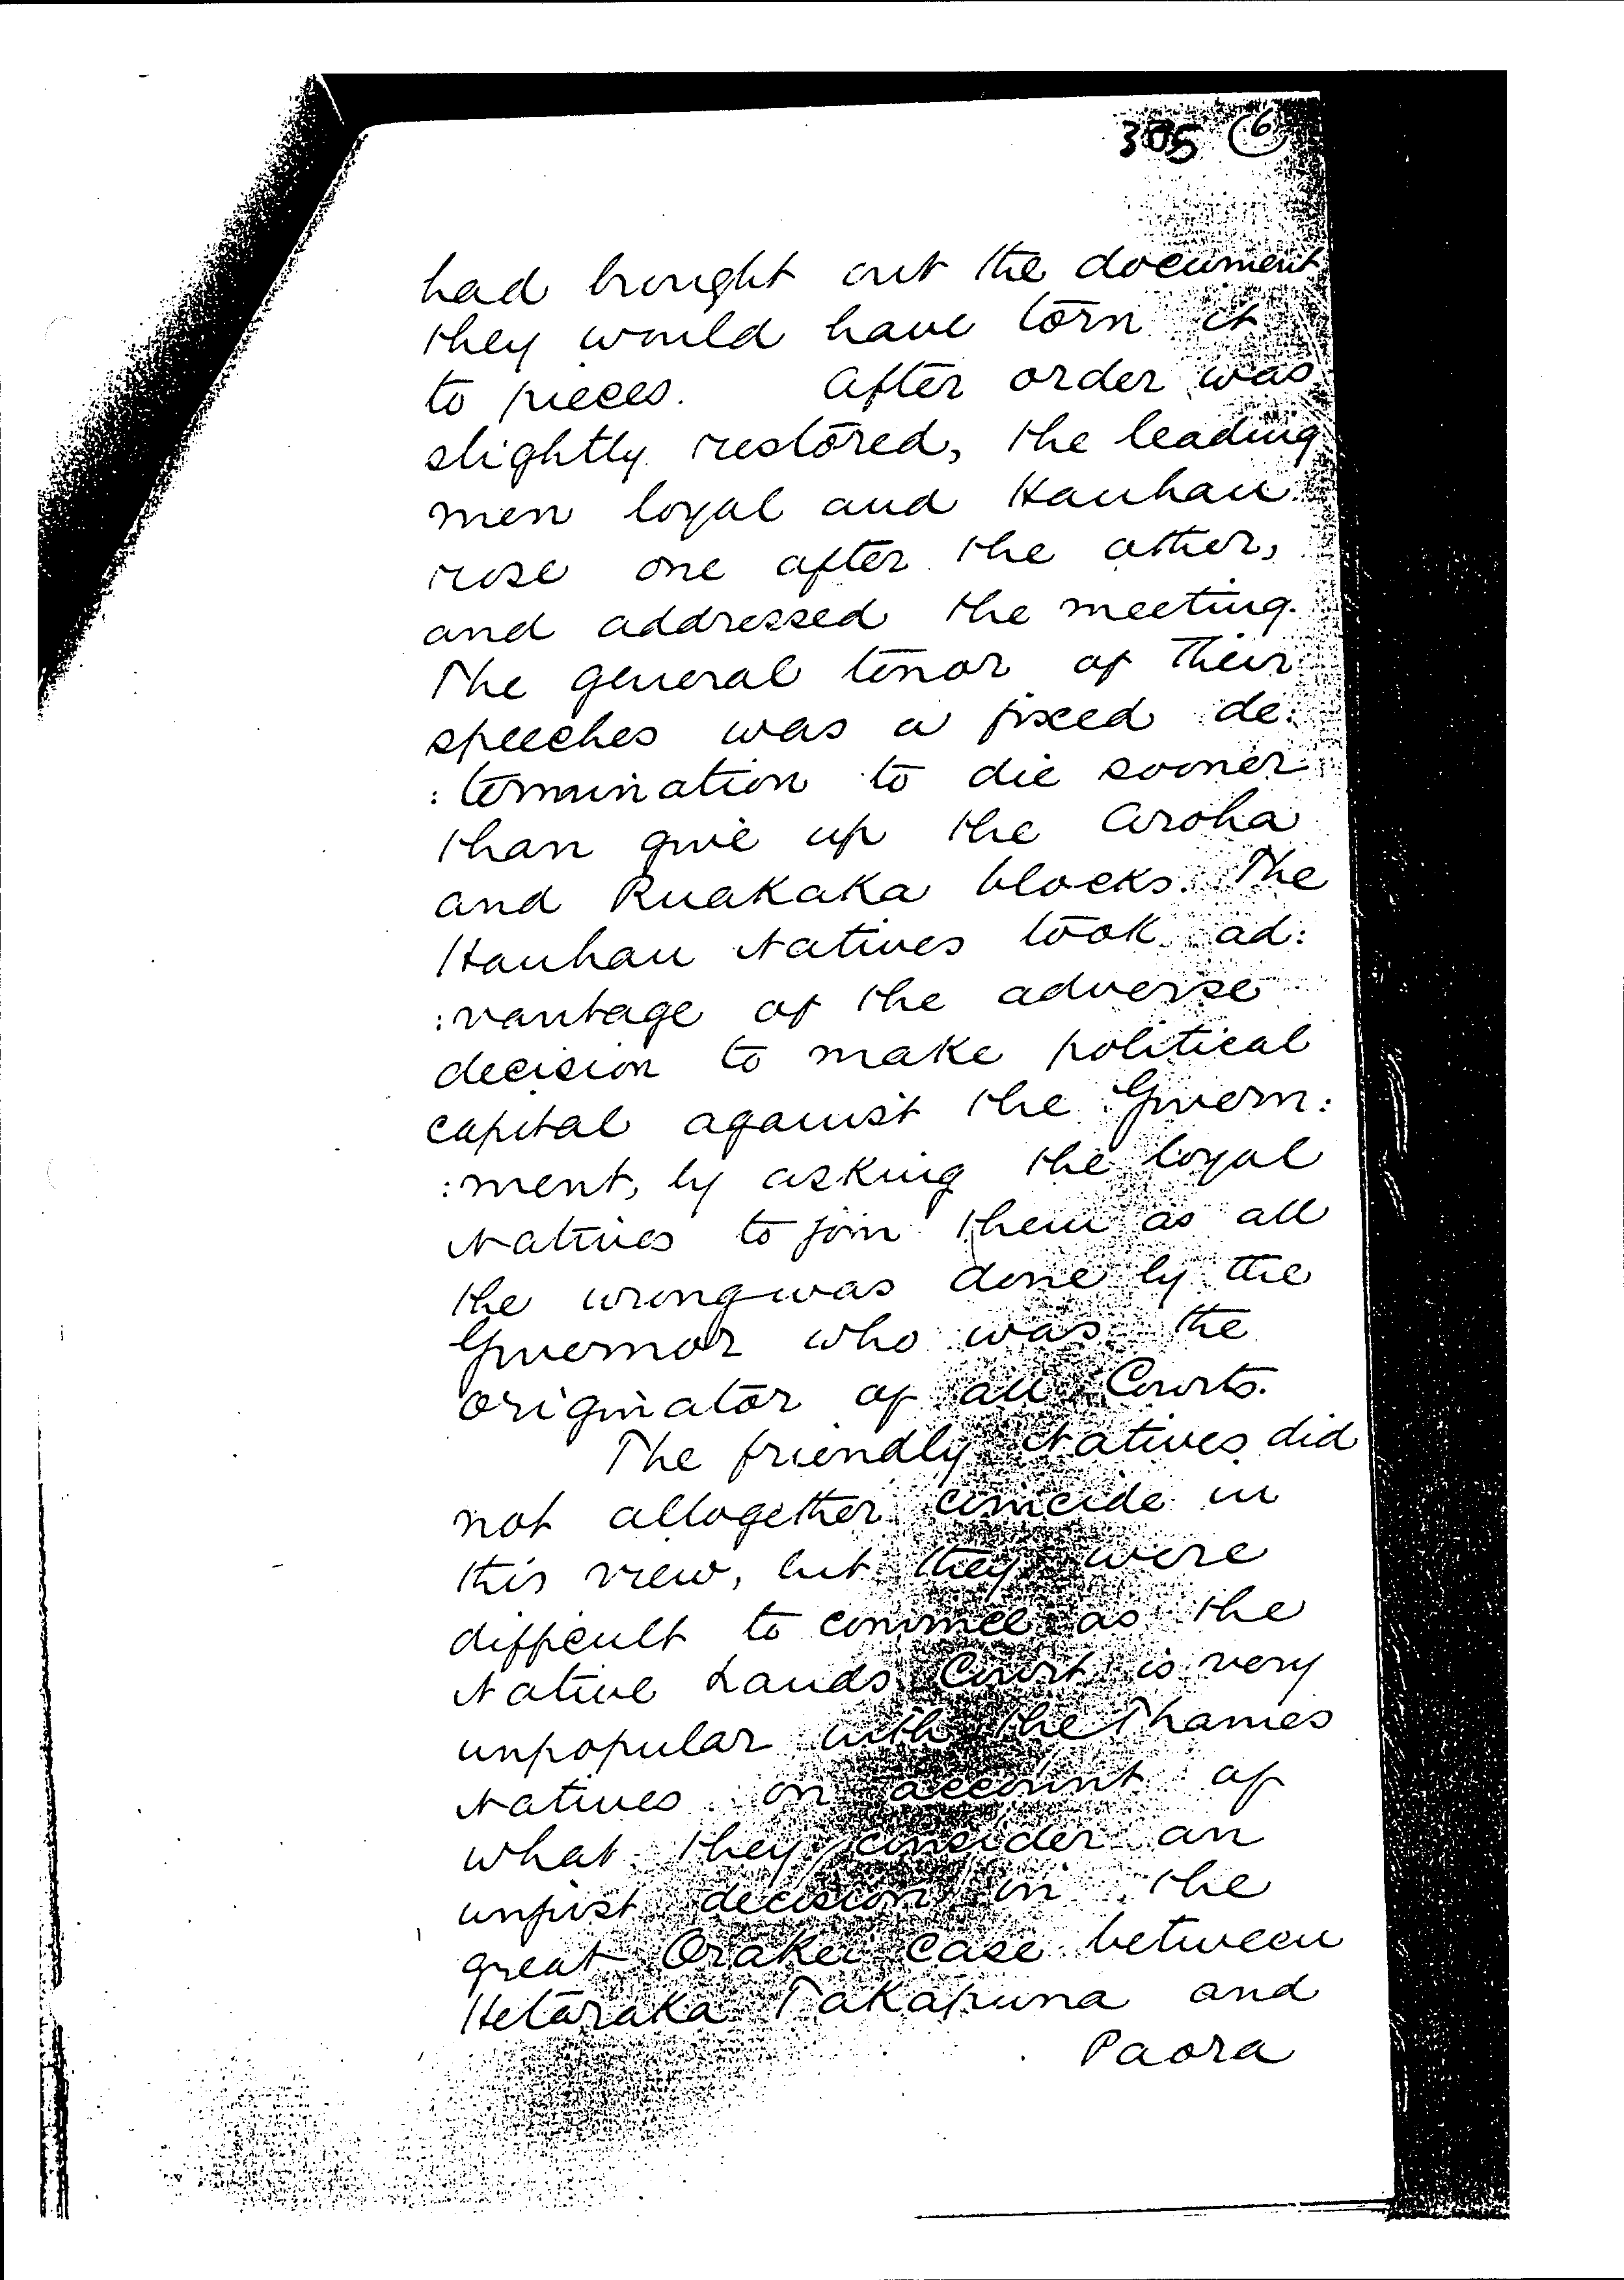 305 6
had brought out the document
they would have torn it
to pieces. After order was
slightly restored, the leading
men loyal and Hauhau
rose one after the other,
and addressed the meeting.
The general tenor of their
speeches was a fixed de:
:termination to die sooner
than give up the Aroha
and Ruakaka blocks. The
Hauhau Natives took ad:
:vantage of the adverse
decision to make political
capital against the Govern:
:ment, by asking the loyal
Natives to join them as all
the wrong was done by the
Governor who was the
originator of all Courts.
The friendly Natives did
not altogether coincide in
this view, but they were
difficult to convince as the
Native Lands Court is very
unpopular with the Thames
Natives on account of
what they consider an
unjust decision in the
great Orakei case between
Hetaraka Takapuna and
Paora